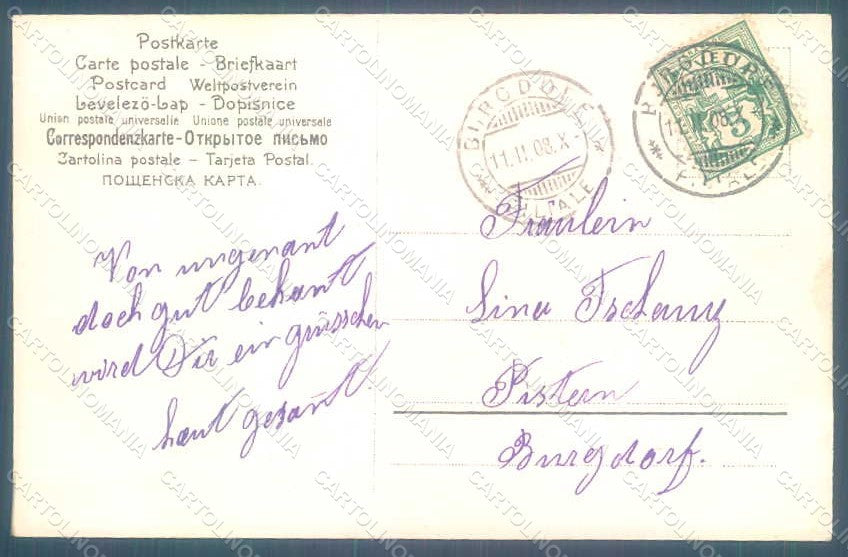 Postkarte
Carte postale - Briefkaart
Postcard Weltpostverein
Levelező-Lap - Dopisnice
Union postale universelle Unione postale universale
Correspondenzkarte - Открытое письмо
Cartolina postale - Tarjeta Postal.
ПОЩЕНСКА КАРТА.
BURGDORF
11.II.08.X-
FILIALE
BURGDORF
11.II.08.X
FILIALE
5
Von ungenant
doch gut bekant
wird Dir ein grüsschen
haut gesant
Fräulein
Lina Tschanz
Pistern
Burgdorf.
CARTOLINOMANIA